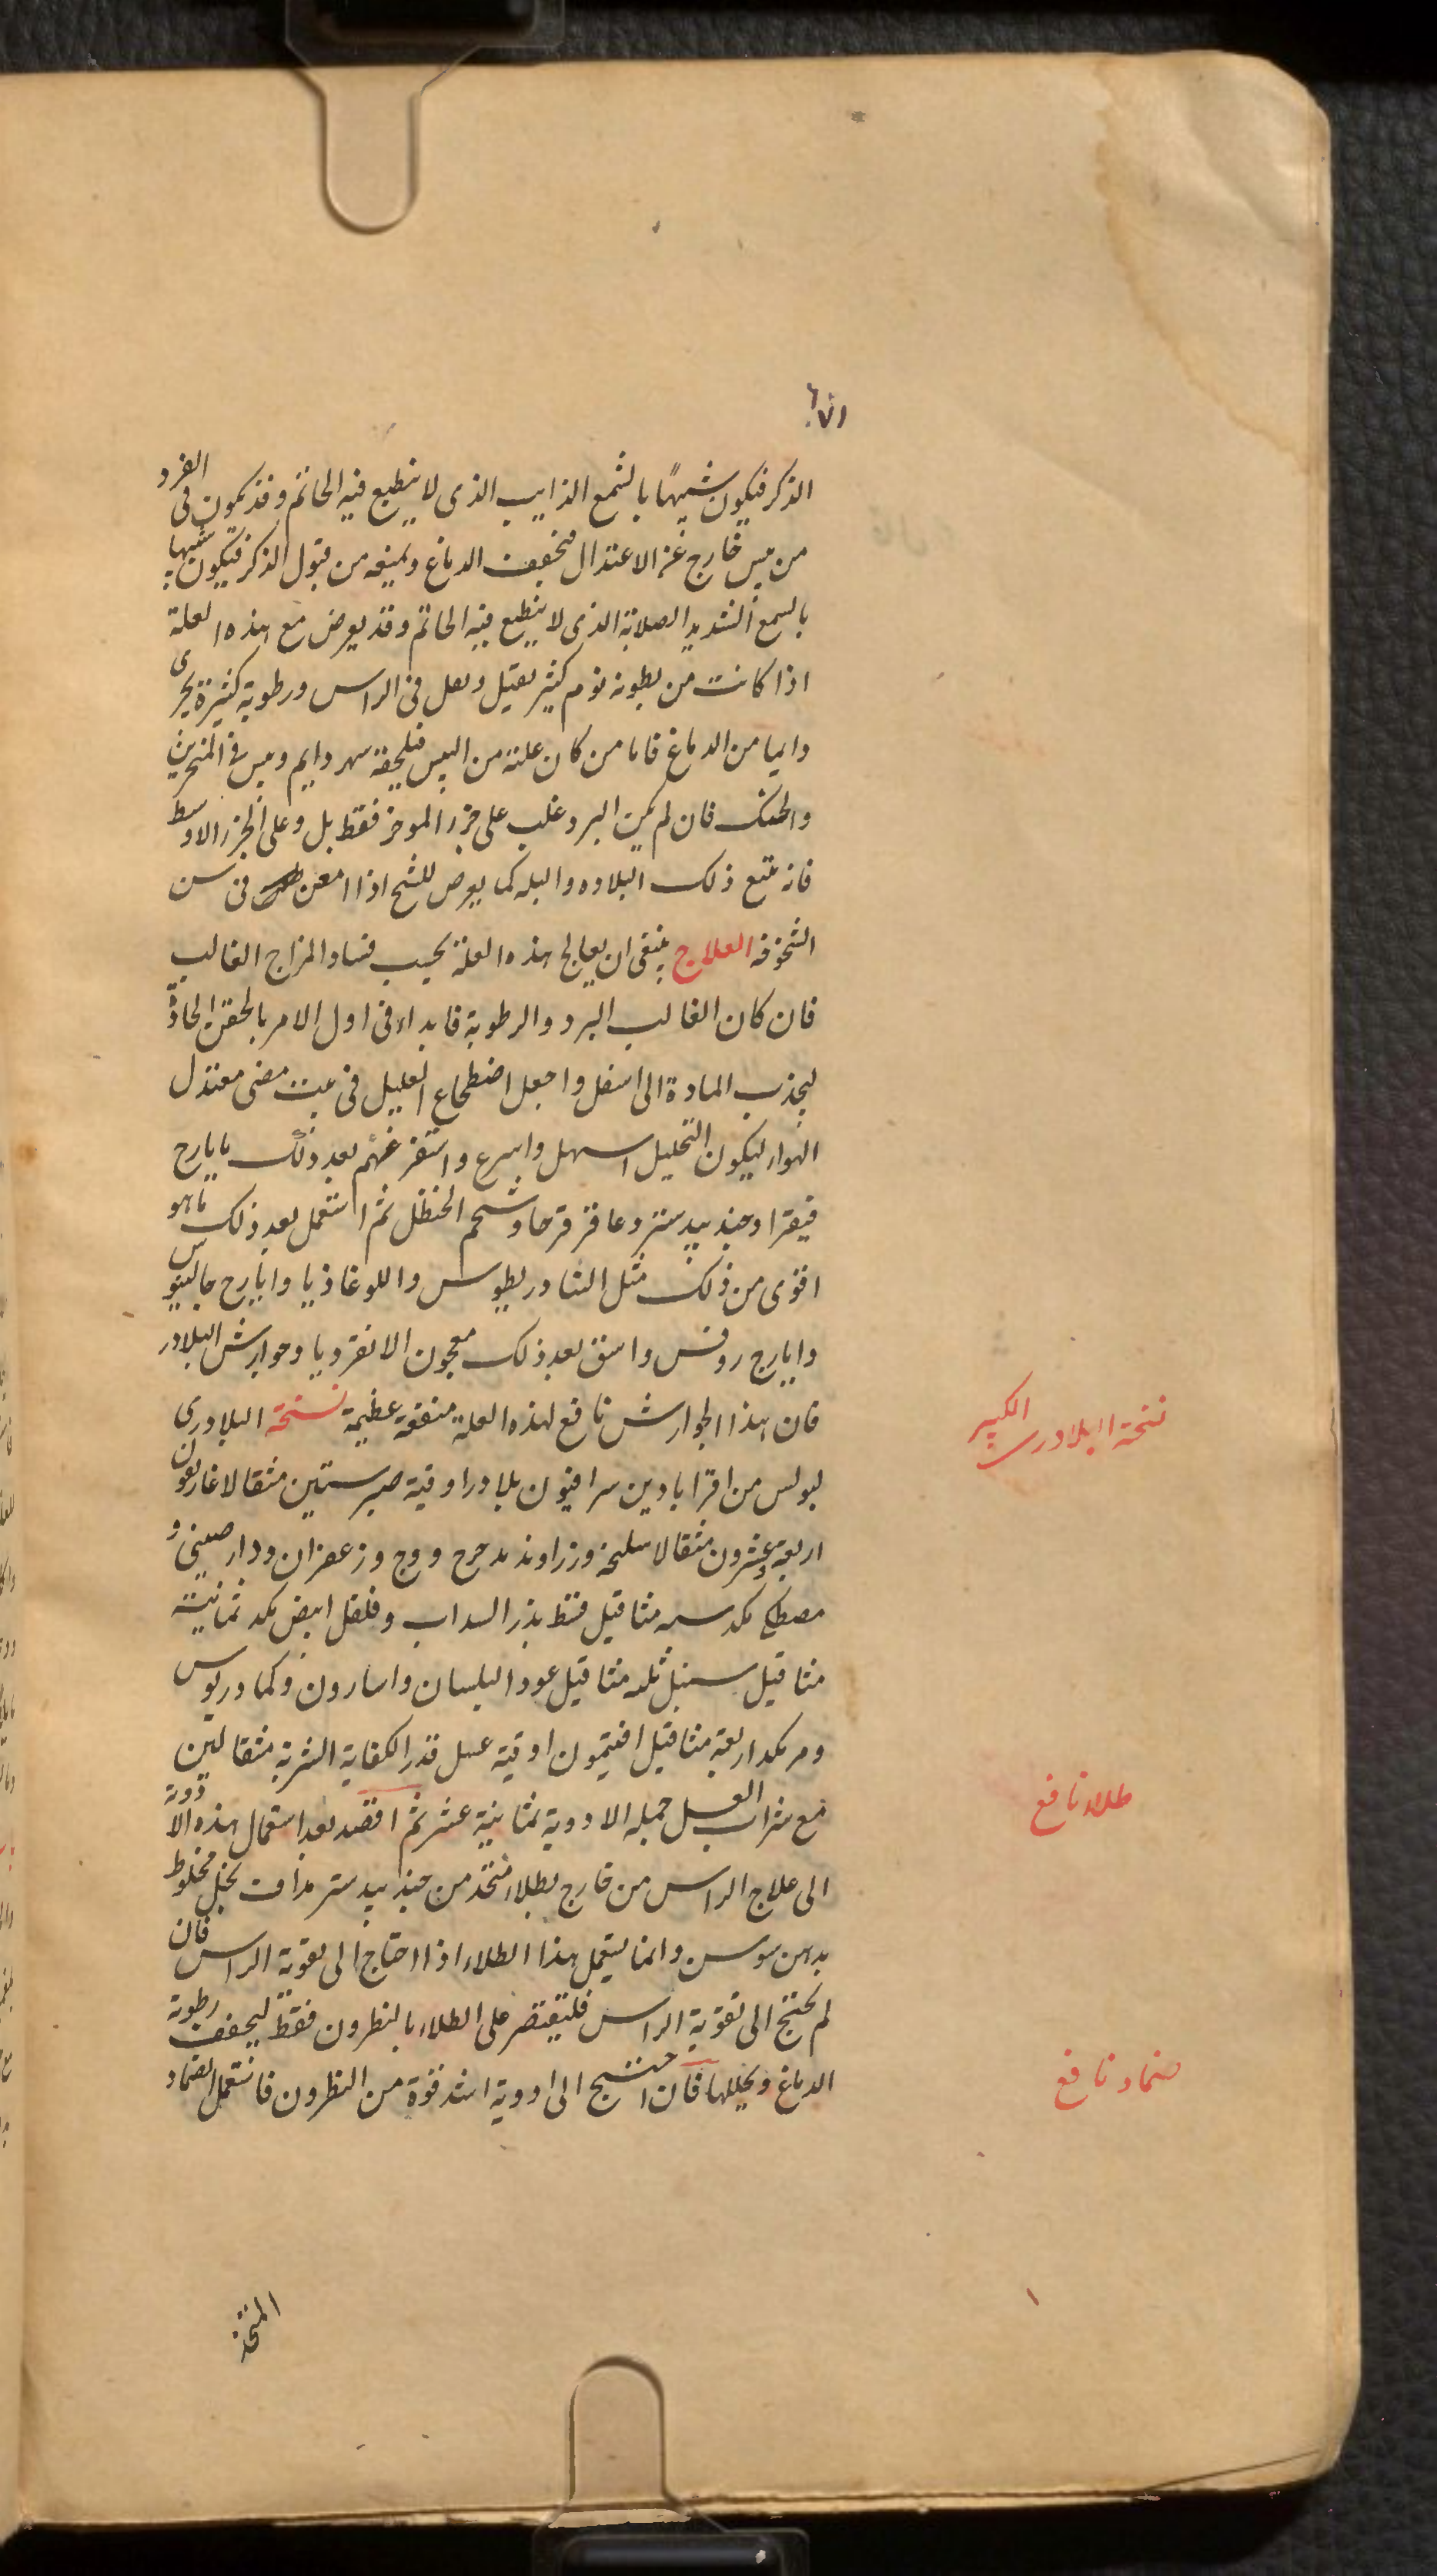 الذكر فيكون شبيهًا بالشمع الذايب الذى لا ينطبع فيه الخاتم وقد يكون فى الفرد
من يبس خارج عن الاعتدال فيجفف الدماغ ويمنعه من قبول الذكر فيكون شبيها
بالشمع الشديد الصلابة الذى لا ينطبع فيه الخاتم وقد يعرض مع هذه العلة
اذا كانت من رطوبة نوم كثير ثقيل وثقل فى الراس ورطوبة كثيرة تجرى
دايما من الدماغ فاما من كان علته من اليبس فيلحقه سهر دايم ويبس فى المنخرين
والحنك فان لم يكن البرد غلب على جزء الموخر فقط بل وعلى الجزء الاوسط
فانه يتبع ذلك البلاده والبله كما يعرض للشيخ اذا امعن فى سن
الشيخوخه العلاج ينبغى ان يعالج هذه العلة بحسب فساد المزاج الغالب
فان كان الغالب البرد والرطوبة فابداء فى اول الامر بالحقن الحادة
ليجذب المادة الى اسفل واجعل اضطجاع العليل فى بيت مضى معتدل
الهواء ليكون التحليل اسهل واسرع واستفرغهم بعد ذلك بايارج
فيقرا وجندبيدستر وعاقرقرحا وشحم الحنظل ثم استعمل بعد ذلك ماهو
اقوى من ذلك مثل التيادريطوس واللوغاذيا وايارج جالينوس
وايارج روفس واسق بعد ذلك معجون الانقرديا وجوارش البلادر
فان هذا الجوارش نافع لهذه العلة منفعة عظيمة نسخة البلادرى
لبولس من اقراباذين سرافيون بلادر اوقية صبر ستين مثقالا غاريقون
اربعة وعشرون مثقالا سليخة وزراوند مدحرج ووج وزعفران ودارصينى و
مصطكى مكد سه مثاقيل قسط بذر السداب وفلفل ابيض مكد ثمانية
مثاقيل سنبل ثلثه مثاقيل عود البلسان واسارون وكمادريوس
ومر مكد اربعة مثاقيل افتيمون اوقية عسل قدر الكفاية الشربة مثقالين
مع شراب العسل جمله الادوية ثمانية عشر ثم اقصد بعد استعمال هذه الادوية
الى علاج الراس من خارج بطلاء متخذ من جندبيدستر مداف بخل مخلوط
بدهن سوسن وانما يستعمل هذا الطلاء اذا احتاج الى تقوية الراس فان
لم يحتج الى تقوية الراس فليقتصر على الطلاء بالنطرون فقط ليجفف رطوبة
الدماغ ويحللها فان احتيج الى ادوية اشد قوة من النطرون فاستعمل الضماد
المتخذ
نسخة البلادرى الكبير
طلاء نافع
ضماد نافع